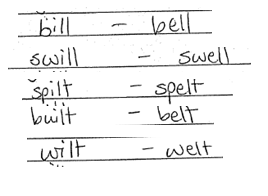 bill - bell
swill - swell
spilt - spelt
built - belt
wilt - welt